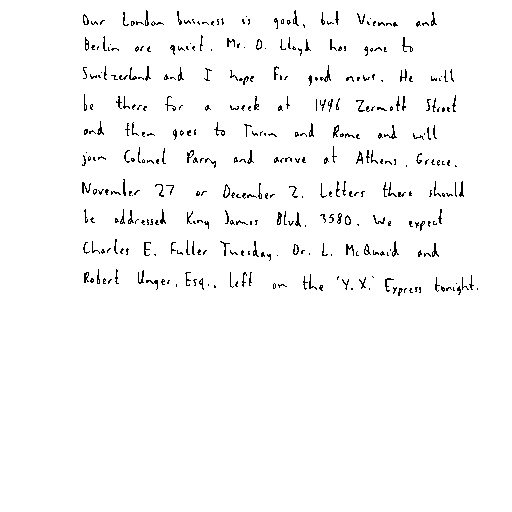 Our London business is good, but Vienna and
Berlin are quiet. Mr. D. Lloyd has gone to
Switzerland and I hope for good news. He will
be there for a week at 1496 Zermott Street
and then goes to Turin and Rome and will
join Colonel Parry and arrive at Athens, Greece,
November 27 or December 2. Letters there should
be addressed King James Blvd. 3580. We expect
Charles E. Fuller Tuesday. Dr. L. McQuaid and
Robert Unger, Esq., left on the 'Y.X.' Express tonight.